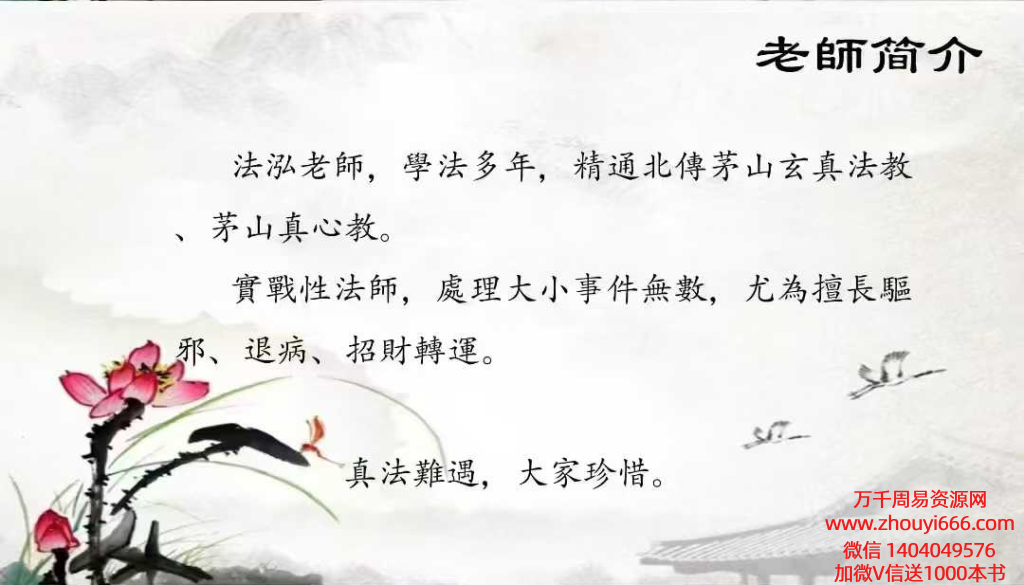 老師简介
法泓老師，學法多年，精通北傳茅山玄真法教
、茅山真心教。
實戰性法師，處理大小事件無數，尤為擅長驅
邪、退病、招財轉運。
真法難遇，大家珍惜。
万千周易资源网
www.zhouyi666.com
微信 1404049576
加微V信送1000本书